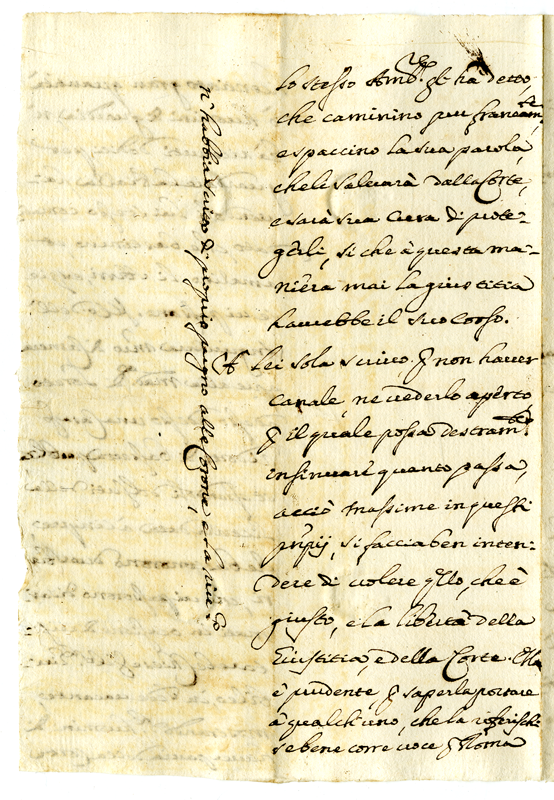 lo stesso Amb.re gl' hà detto,
che caminino pur francam.te
e spaccino la sua parola,
che li salvarà dalla Corte,
e sarà sua cura di prote-
gerli, si che à questa ma-
niera mai la giustitia
haverebbe il suo corso.
A Lei sola scrivo, p non haver
canale, ne vederlo aperto
p il quale possa destram.te
insinuare quanto passa,
acciò massime in questi
prīpij, si faccia ben inten-
dere di volere qllo, che è
giusto, e la libertà della
Giustitia, e della Corte. Ella
è prudente p saperla portare
à qualch'uno, che la riferischi
se bene corre voce p Roma
n' habbia scritto di proprio pugno alle Corone, e la